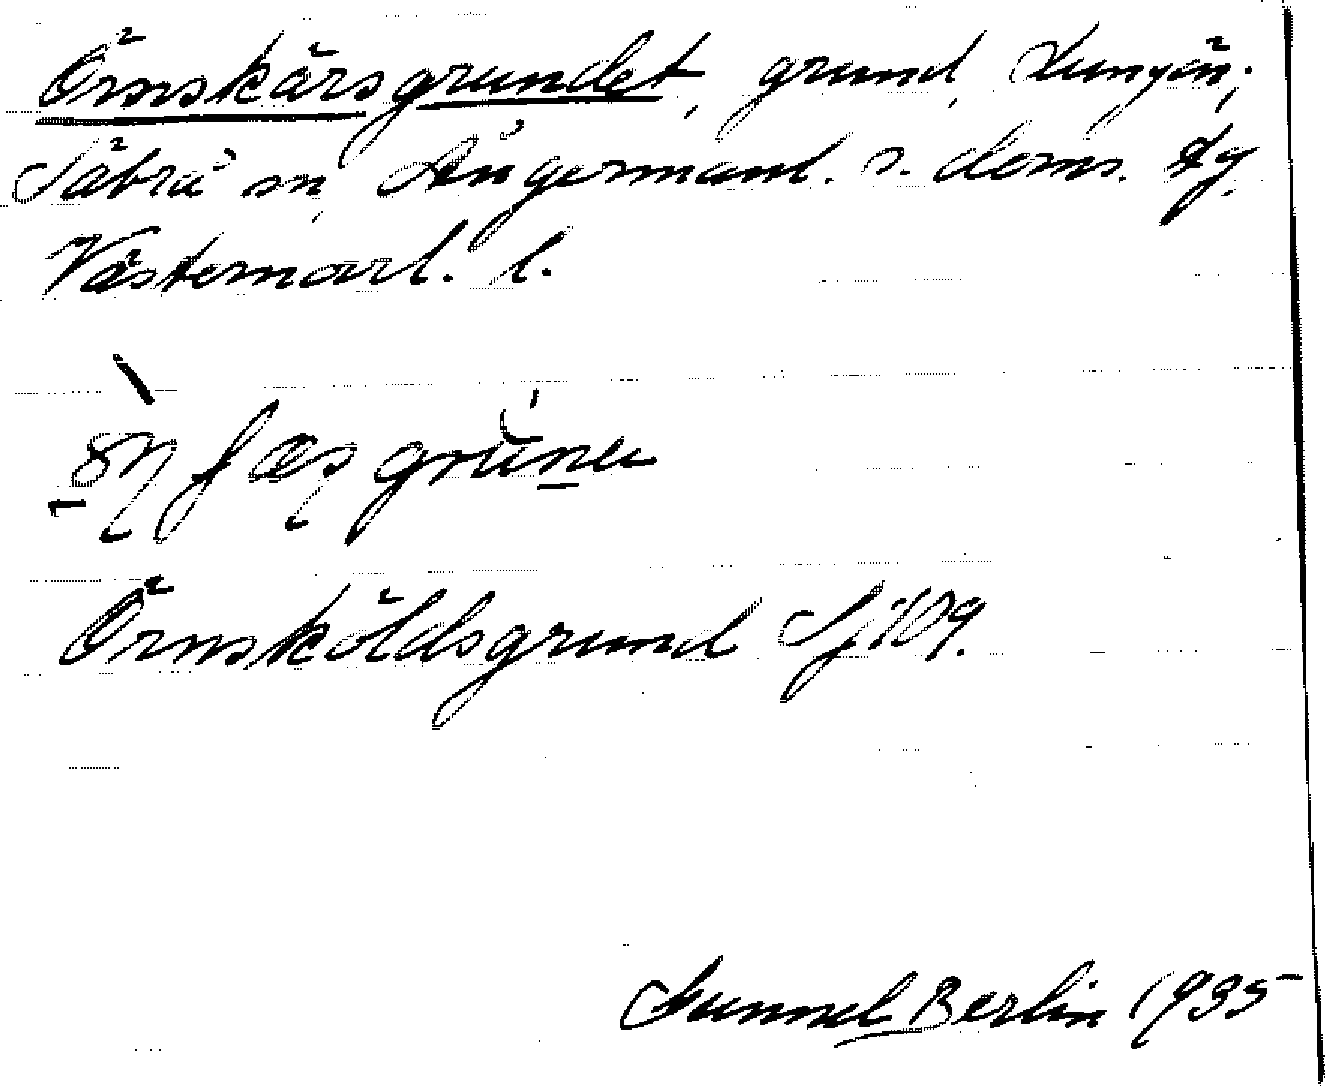 Örnskärsgrundet, grund, Lungön;
Säbrå sn, Ångermanl. s. doms. tg
Västernorrl. l.
Örnsköldsgrund Sj 109.
Gunnel Berlin 1935